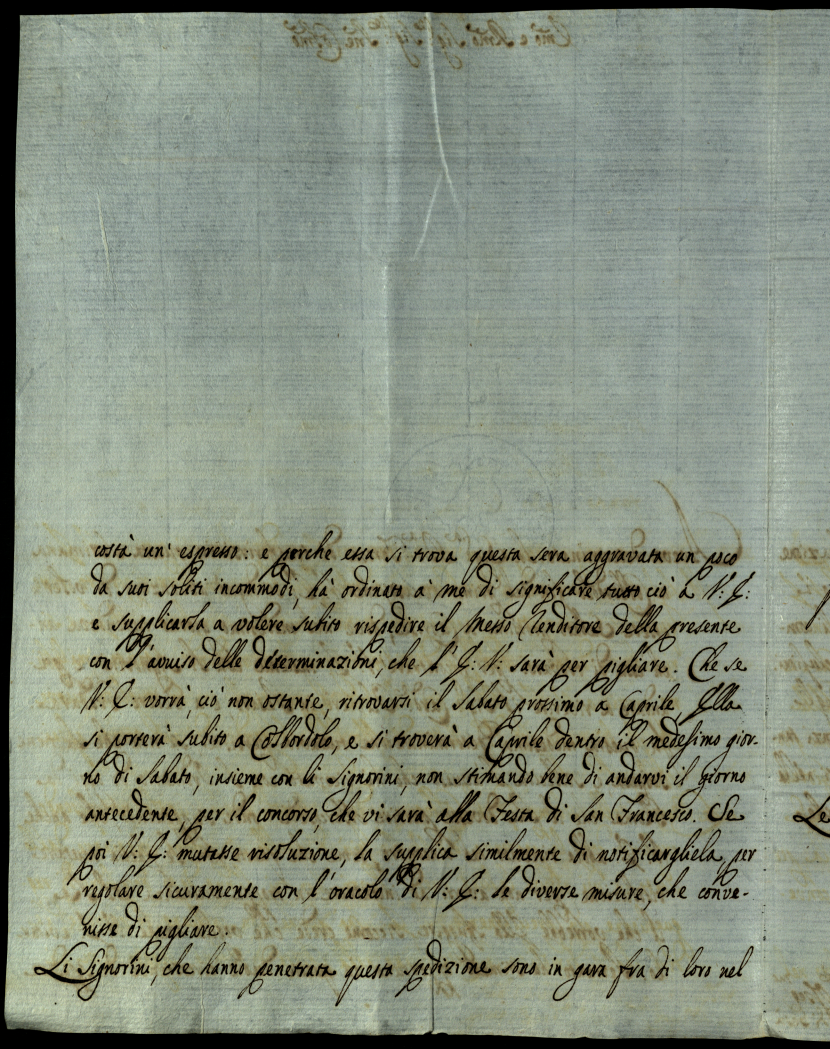 costà un' espresso: e perche essa si trova questa sera aggravata un poco
da suoi soliti incommodi, hà ordinato à me di significare tutto ciò a V: E:
e supplicarla a volere subito rispedire il Messo Renditore della presente
con l'avviso delle determinazioni, che l' E: V: sarà per pigliare. Che se
V: E: vorrà, ciò non ostante, ritrovarsi il Sabato prossimo a Caprile, Ella
si porterà subito a Colbordolo, e si troverà a Caprile dentro il medesimo gior-
no di Sabato, insieme con li Signorini, non stimando bene di andarvi il giorno
antecedente, per il concorso, che vi sarà alla Festa di San Francesco. Se
poi V: E: mutasse risoluzione, la supplica similmente di notificargliela, per
regolare sicuramente con l'oracolo di V: E: le diverse misure, che conve-
nisse di pigliare.
Li Signorini, che hanno penetrata questa spedizione sono in gara fra di loro nel
Le